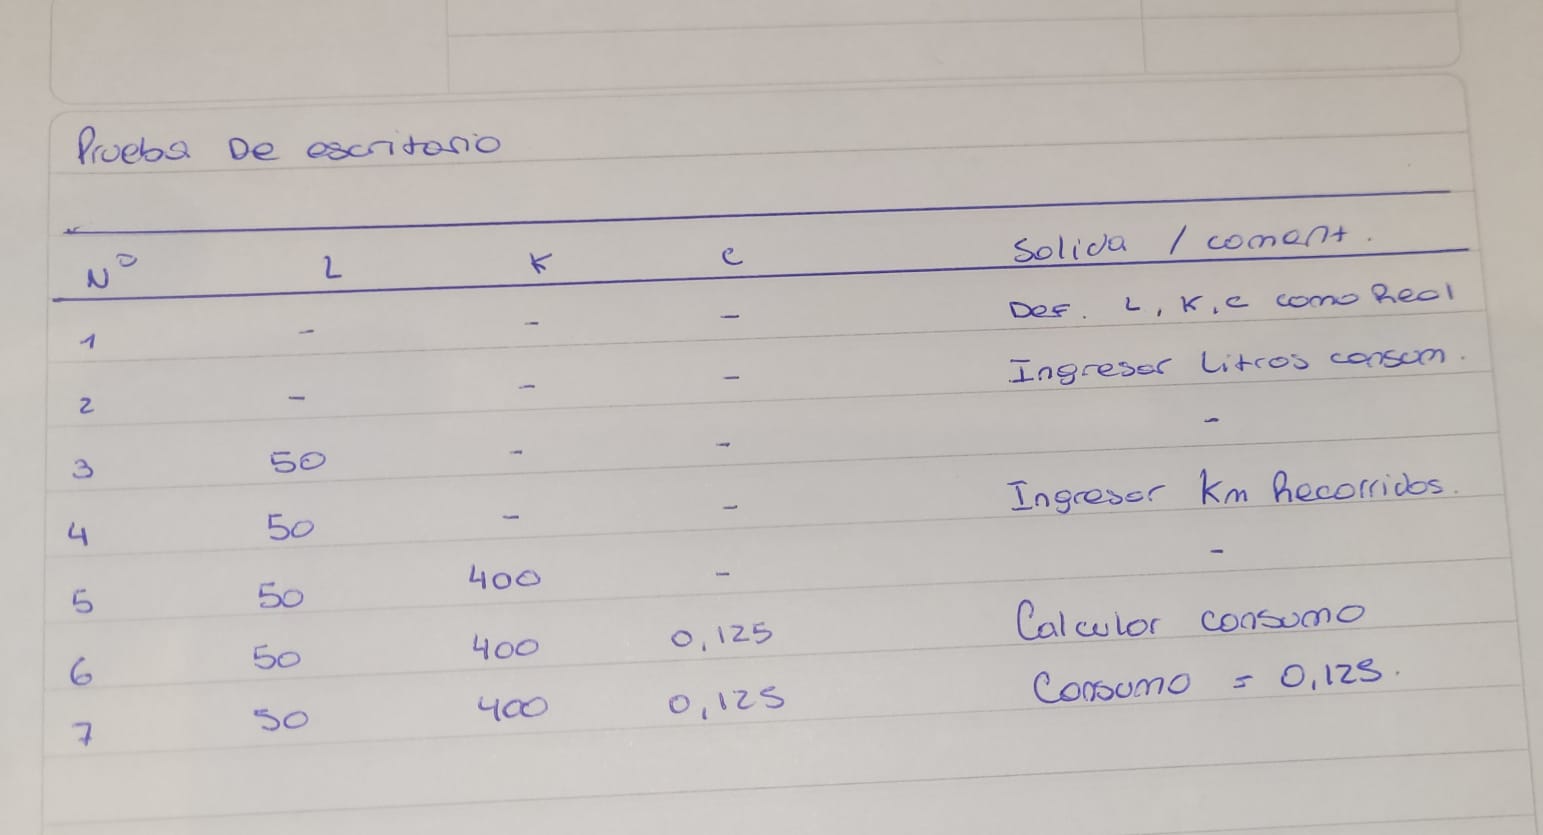 Prueba De escritorio
N° L K C Salida / coment.
1 - - - Def. L, K, C como Real
2 - - - Ingresar Litros consum.
3 50 - - -
4 50 - - Ingresar Km Recorridos.
5 50 400 - -
6 50 400 0,125 Calcular consumo
7 50 400 0,125 Consumo = 0,125.